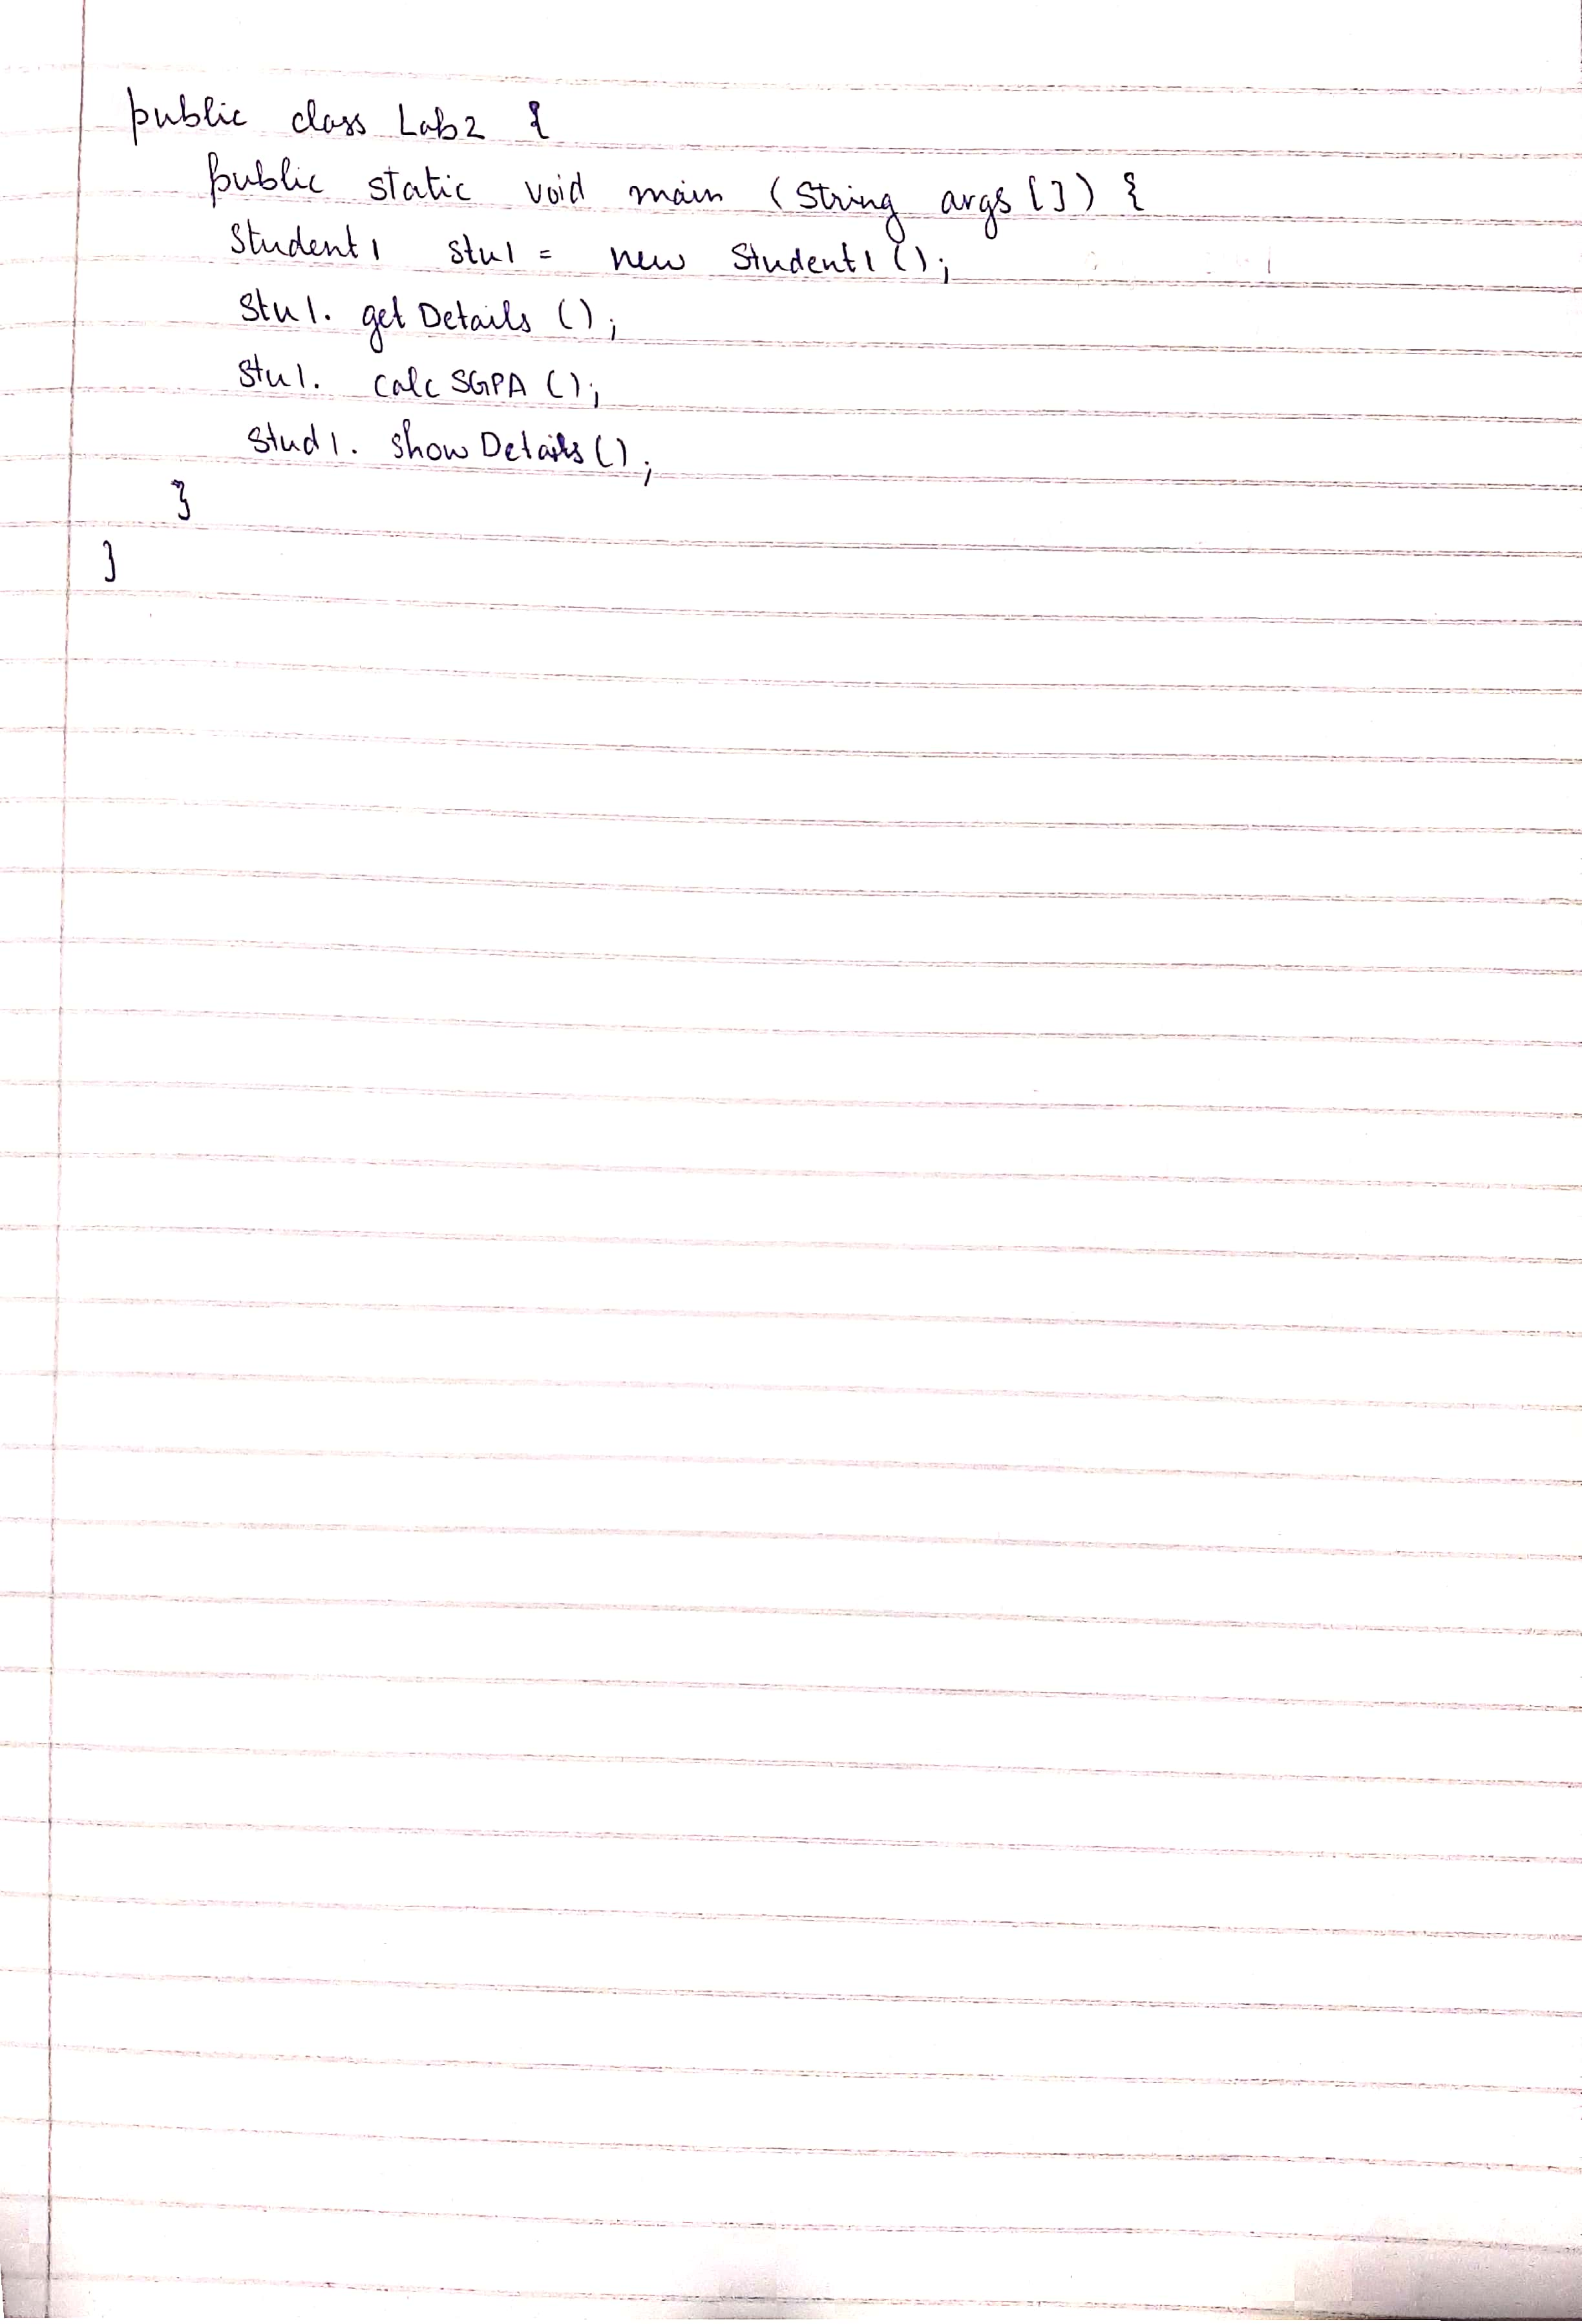 public class Lab2 {
public static void main (String args []) {
Student1 stu1 = new Student1 ();
Stu1. getDetails ();
Stu1. calcSGPA ();
Stud1. showDetails ();
}
}